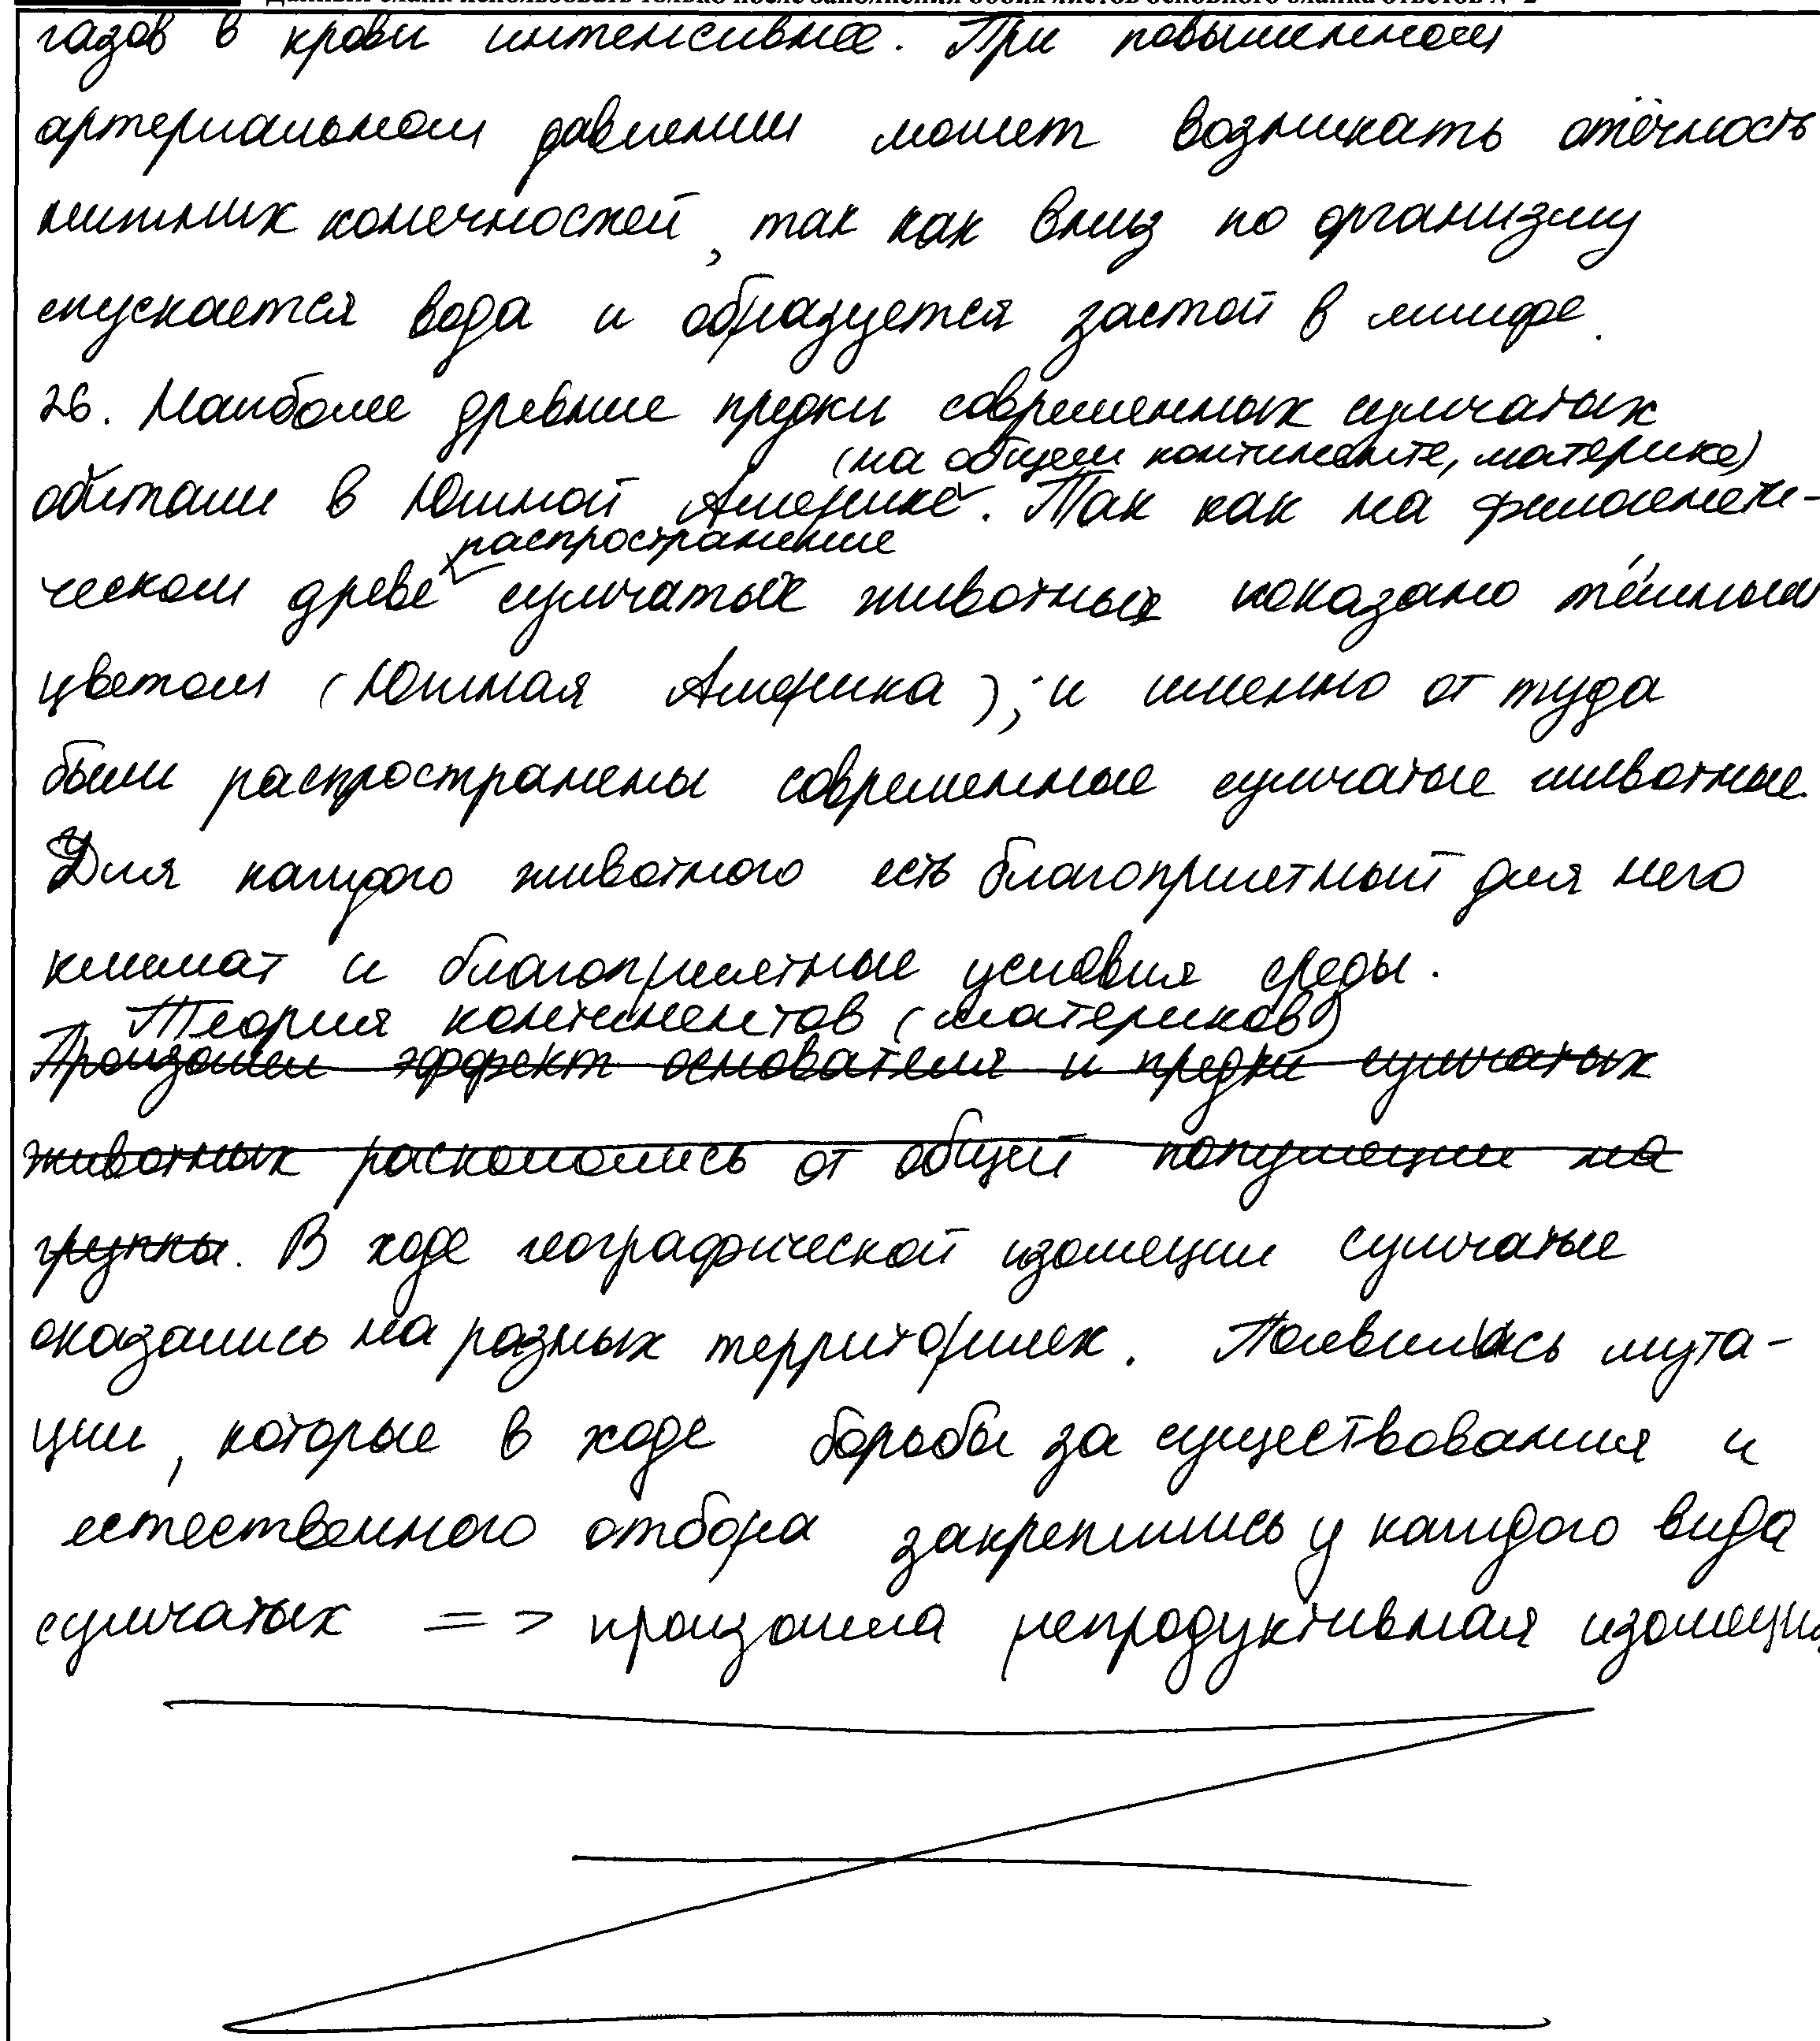 Данный бланк использовать только после заполнения обоих листов основного бланка ответов № 2
газов в крови интенсивнее. При повышенном
артериальном давлении может возникать отёчность
нижних конечностей, так как вниз по организму
спускается вода и образуется застой в лимфе.
26. Наиболее древние предки современных сумчатых
(на общем континенте, материке)
обитали в Южной Америке. Так как на филогенети-
распространение
ческом древе сумчатых животных показано тёмным
цветом (Южная Америка); и именно от туда
были распространены современные сумчатые животные.
Для каждого животного есть благоприятный для него
климат и благоприятные условия среды.
Теория континентов (материков)
Произошёл эффект основателя и предки сумчатых
животных раскололись от общей популяции на
группы. В ходе географической изоляции сумчатые
оказались на разных территориях. Появились мута-
ции, которые в ходе борьбы за существования и
естественного отбора закрепились у каждого вида
сумчатых => произошла репродуктивная изоляция